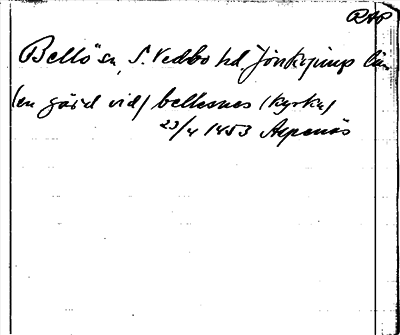 RAP
Bellö sn, S. Vedbo hd, Jönköpings län
(en gård vid) bellesnes (kyrka)
23/4 1453 Aspenäs